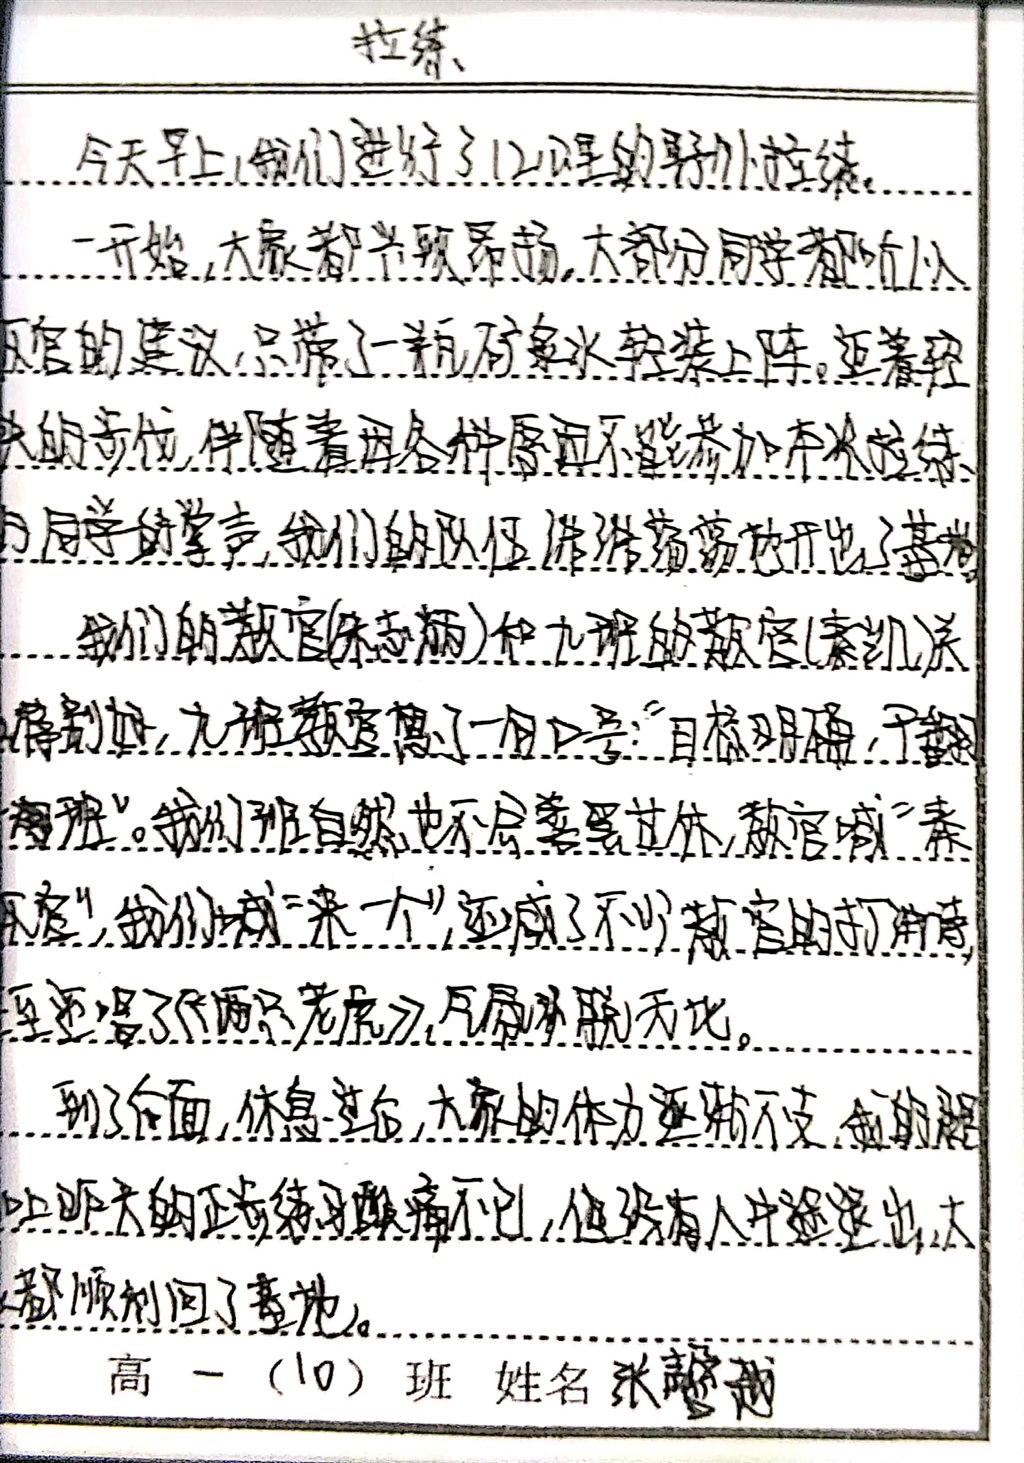 拉练
今天早上,我们进行了12公里的野外拉练。
一开始,大家都兴致昂扬。大部分同学都听从
官的建议,只带了一瓶矿泉水轻装上阵。迈着轻
快的步伐,伴随着因各种原因不能参加本次拉练
的同学的掌声,我们的队伍浩浩荡荡地开出了基地
我们的教官(朱志炳)和九班的教官(秦凯)关
得别好,九班教官想了一个口号:“目标明确,干翻
班”。我们班自然也不会善罢甘休,教官喊“秦
官”,我们喊“来一个”,还喊了不少教官的打油诗,
至还唱了《两只老虎》,气氛
到了后面,休息过后,大家的体力逐渐不支,我的腿
加上昨天的正步练习酸痛不已,但没有人中途退出,大
都顺利回了基地。
高一(10)班 姓名 张馨越